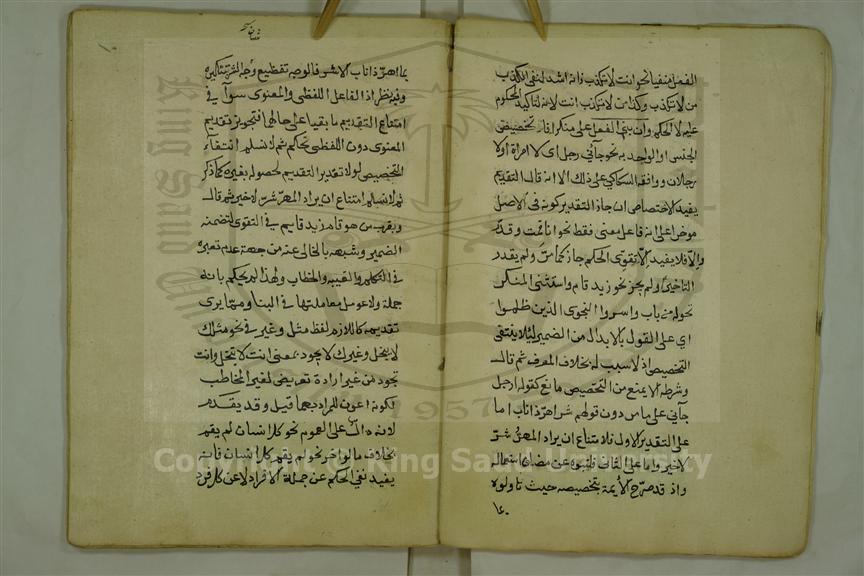 الفعل منفيا نحو انت لا تكذب فانه اشد لنفى الكذب
من لا تكذب وكذا من لا تكذب انت لانه لتاكيد المحكوم
عليه لا الحكم وان بنى الفعل على منكر افاد تخصيص
الجنس او الواحد به نحو رجل جاءنى اى لا امراة او لا
رجلان ووافقه السكاكى على ذلك الا انه قال التقديم
يفيد الاختصاص ان جاز التقدير كونه فى الاصل
موخرا على انه فاعل معنى فقط نحو انا قمت وقدر
والا فلا يفيد الا تقوى الحكم جاز كما مر ولم يقدر
التاخير او لم يجز نحو زيد قام واستثنى المنكر
بجعله من باب واسروا النجوى الذين ظلموا
اى على القول بالابدال من الضمير لئلا ينتفى
التخصيص اذ لا سبب له بخلاف المعرف ثم قال
وشرطه الا يمنع من التخصيص مانع كقوله رجل
جاءنى على ما مر دون قولهم شر اهر ذا ناب اما
على التقدير الاول فلامتناع ان يراد المهر شر
لا خير واما على الثانى فلنبوه عن مظان استعماله
واذ قد صرح الايمة بتخصيصه حيث تاولوه
بما اهر ذا ناب الا شر فالوجه تفظيع شان الشر بتنكيره
وفيه نظر اذ الفاعل اللفظى والمعنوى سوآ فى
امتناع التقديم ما بقيا على حالهما فتجويز تقديم
المعنوى دون اللفظى تحكم ثم لا نسلم انتفاء
التخصيص لولا تقدير التقديم لحصوله بغيره كما ذكر
ثم لا نسلم امتناع ان يراد المهر شر لا خير ثم قال
ويقرب من هو قام زيد قايم فى التقوى لتضمنه
الضمير وشبهه بالخالى عنه من جهة عدم تغيره
فى التكلم والغيبة والخطاب ولهذا لم يحكم بانه
جملة ولا عومل معاملتها فى البنا ومما يرى
تقديمه كاللازم لفظ مثل وغير فى نحو مثلك
لا يبخل وغيرك لا يجود بمعنى انت لا تبخل وانت
تجود من غير ارادة تعريض لغير المخاطب
لكونه اعون للمراد بهما قيل وقد يقدم
لانه دال على العموم نحو كل انسان لم يقم
بخلاف ما لو اخر نحو لم يقم كل انسان فانه
يفيد نفى الحكم عن جملة الافراد لا عن كل فرد
Copyright © King Saud University
1957